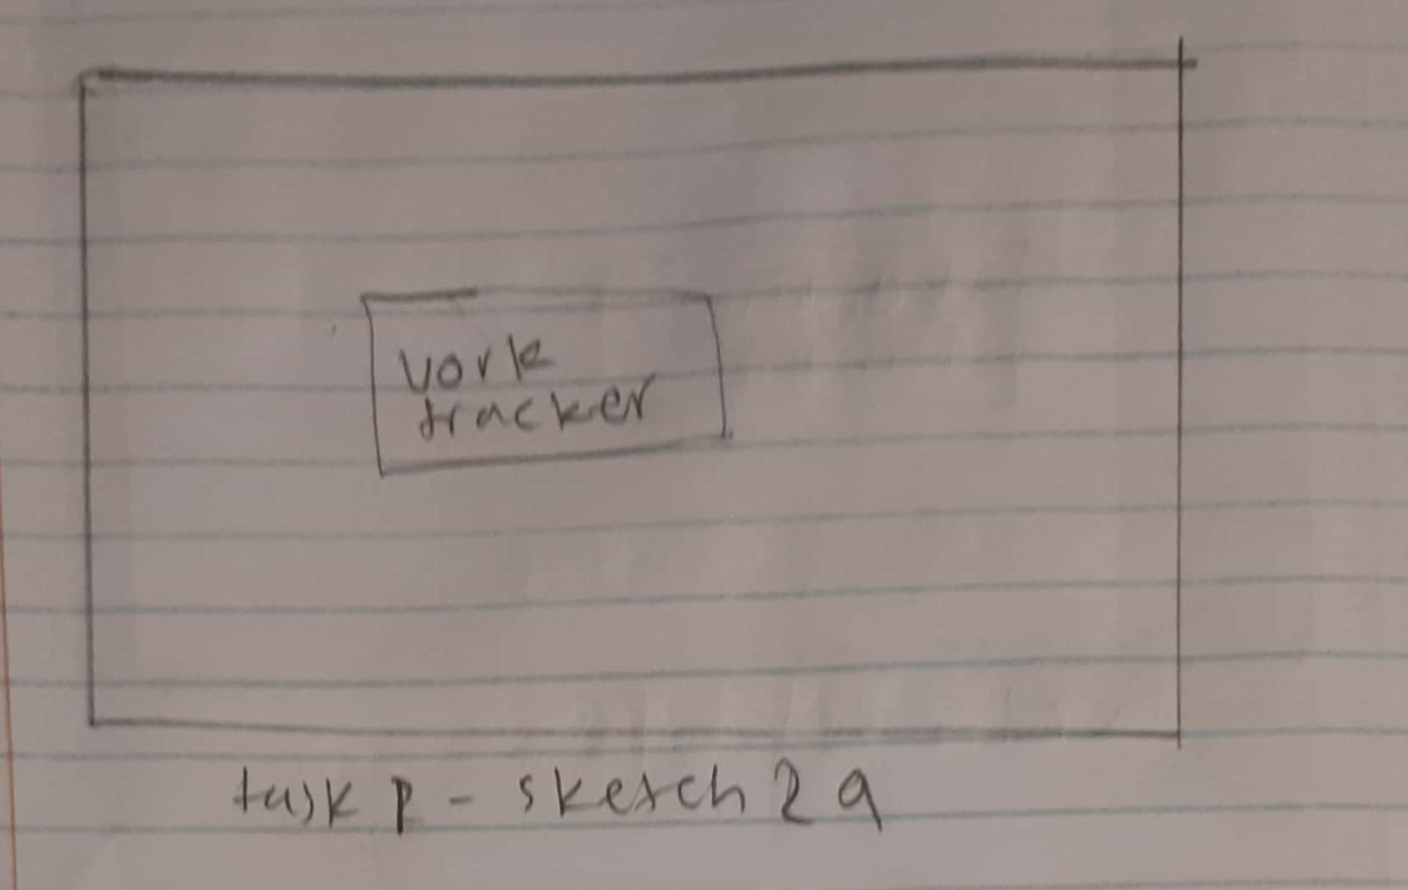 work
tracker
task P - sketch 2a